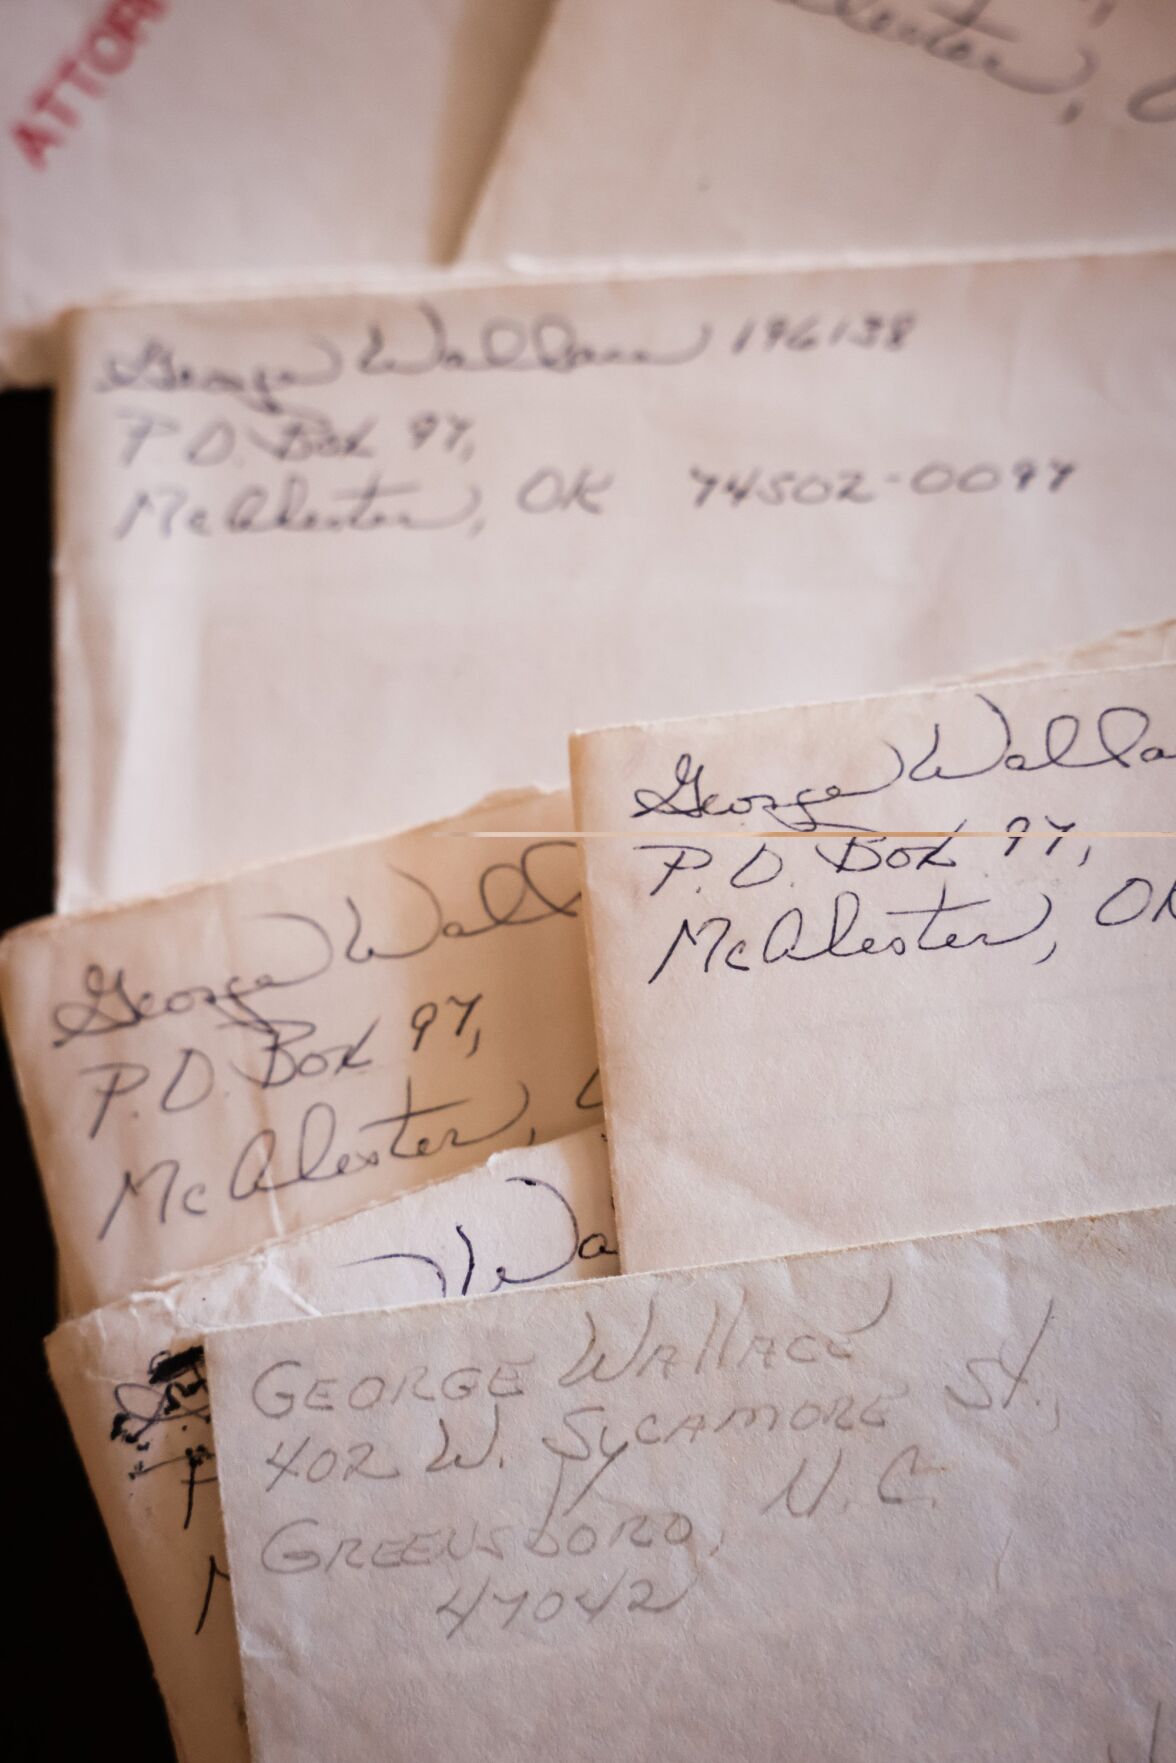 ATTOR
George Wallace 196138
P.O. Box 97,
McAlester, OK 74502-0097
George Walla
P.O. Box 97,
McAlester, OK
George Wall
P.O. Box 97,
McAlester,
Wa
GEORGE WALLACE
402 W. SYCAMORE St.,
GREENSBORO, N.C.
47042